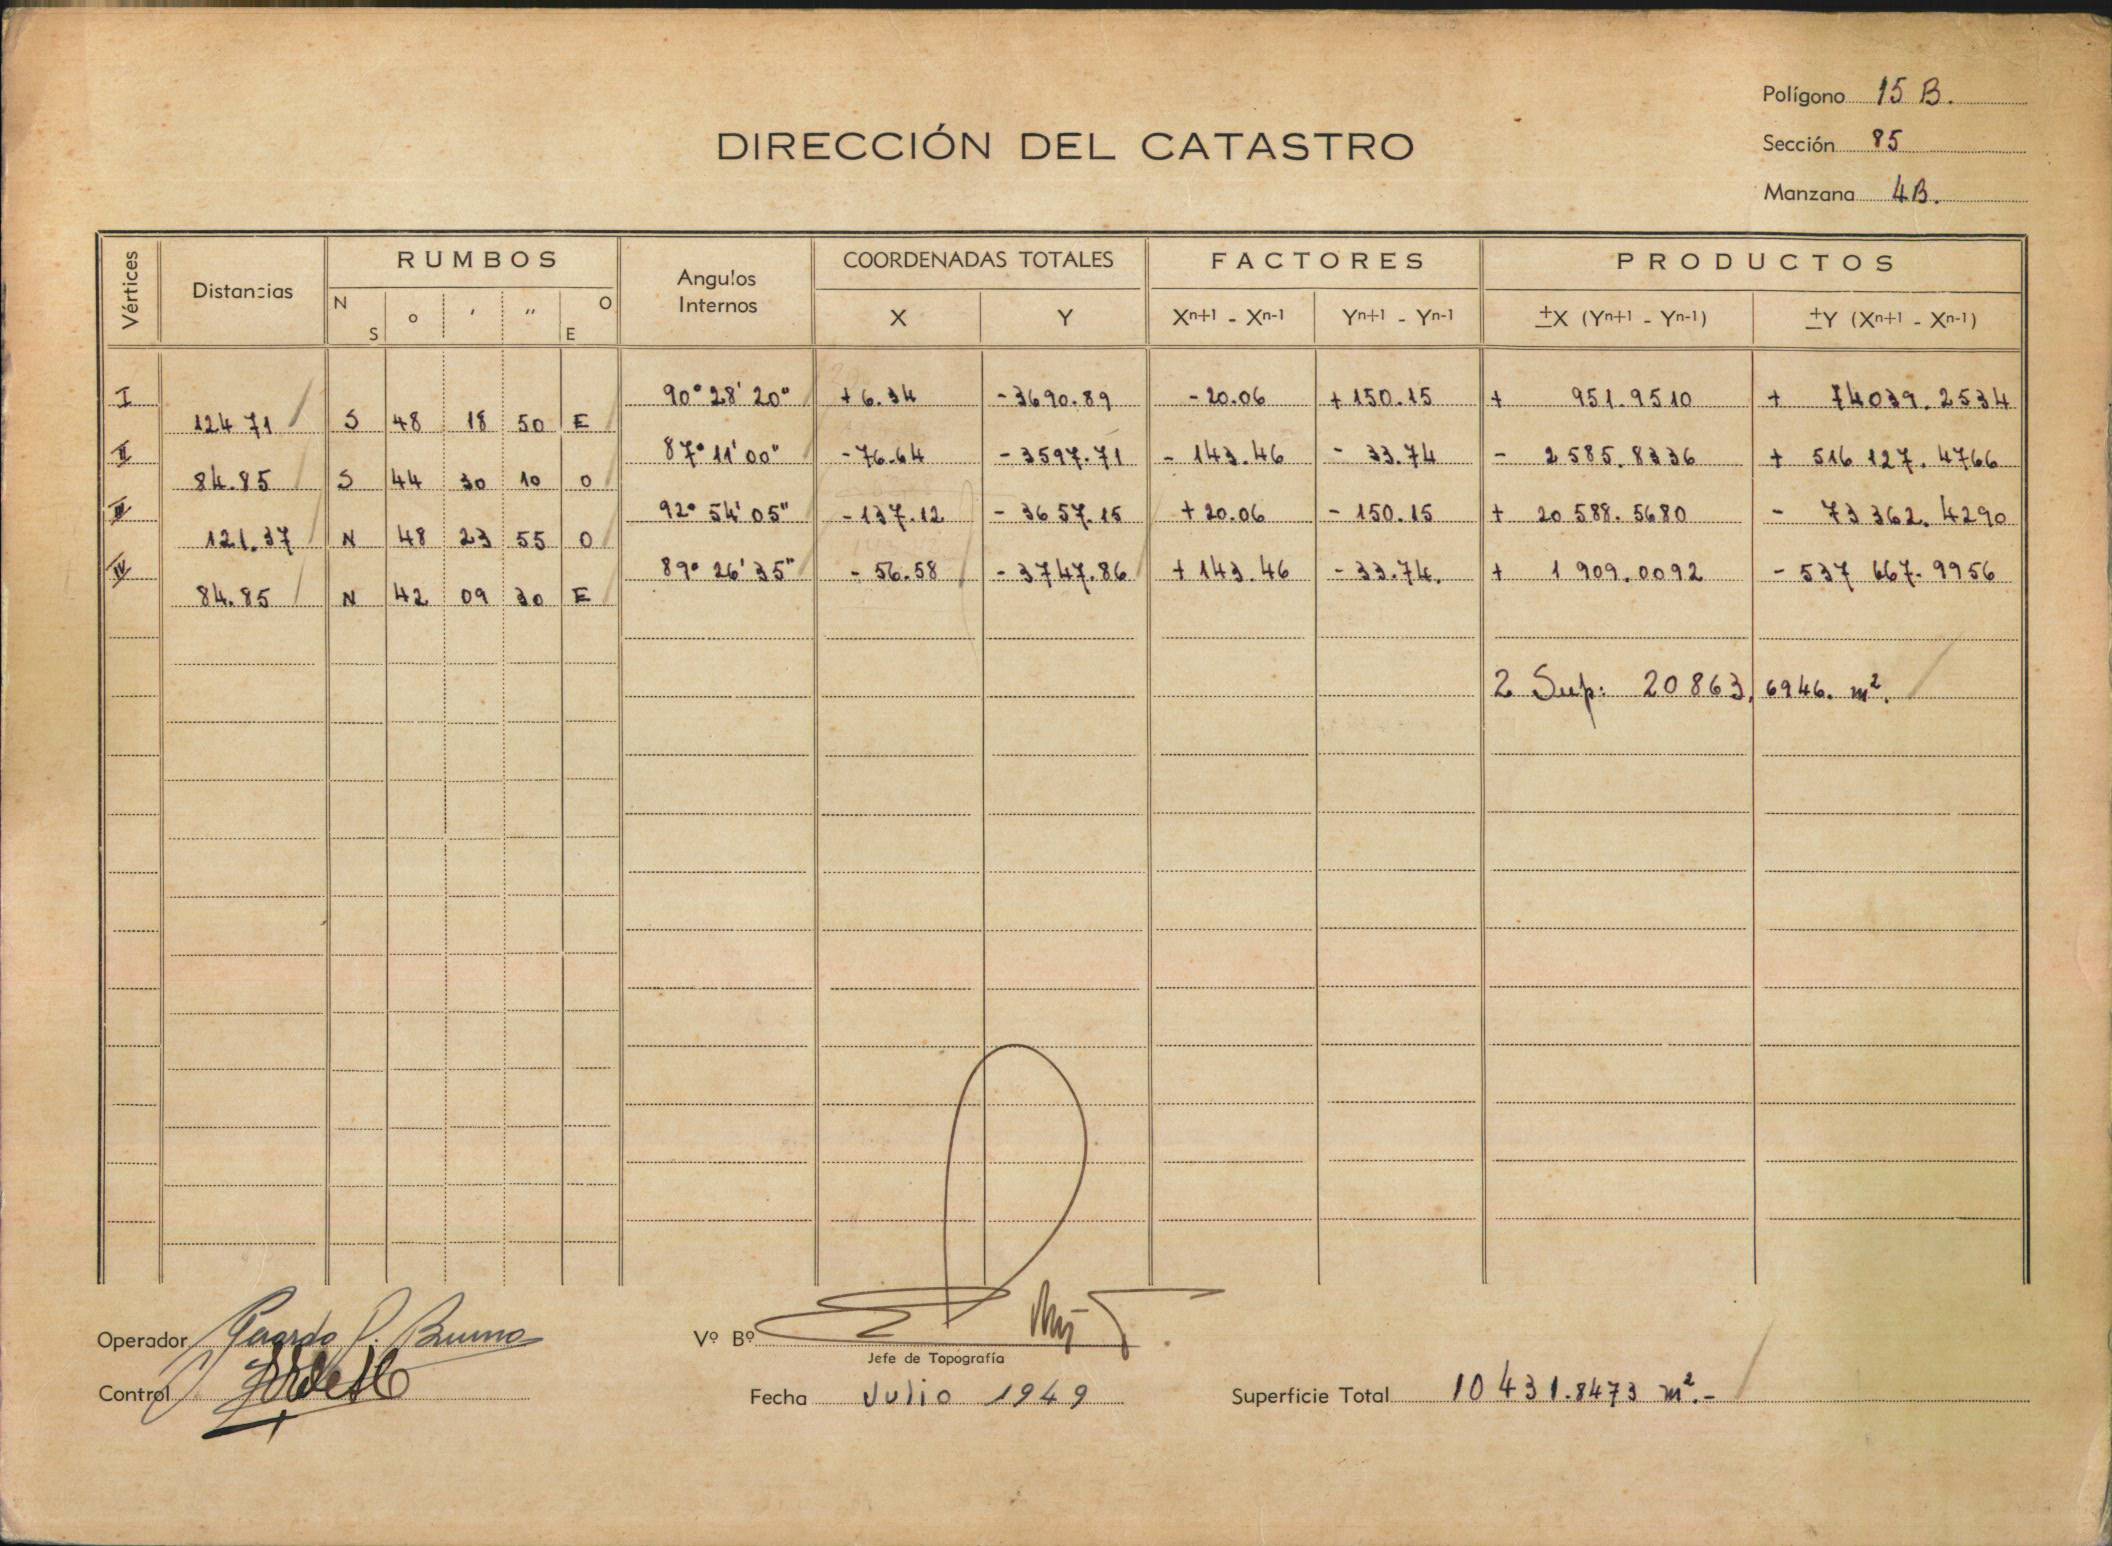 Polígono 15 B.
DIRECCIÓN DEL CATASTRO
Sección 85
Manzana 4B.
Vértices Distancias RUMBOS Angulos Internos COORDENADAS TOTALES FACTORES PRODUCTOS
N S ° ' '' O E X Y Xn+1 - Xn-1 Yn+1 - Yn-1 ±X (Yn+1 - Yn-1) ±Y (Xn+1 - Xn-1)
I 90° 28' 20" + 6.34 - 3690.89 - 20.06 + 150.15 + 951.9510 + 74039.2534
124 71 S 48 18 50 E
II 87° 11' 00" - 76.64 - 3597.71 - 143.46 - 33.74 - 2 585.8336 + 516 127.4766
84.85 S 44 30 10 O
III 92° 54' 05" - 137.12 - 3657.15 + 20.06 - 150.15 + 20 588.5680 - 73 362.4290
121.37 N 48 23 55 O
IV 89° 26' 35" - 56.58 - 3747.86 + 143.46 - 33.74. + 1 909.0092 - 537 667.9956
84.85 N 42 09 30 E
2 Sup: 20 863,6946. m².
Operador
Vº Bº
Jefe de Topografía
Control
Fecha Julio 1949
Superficie Total 10 431.8473 m².-